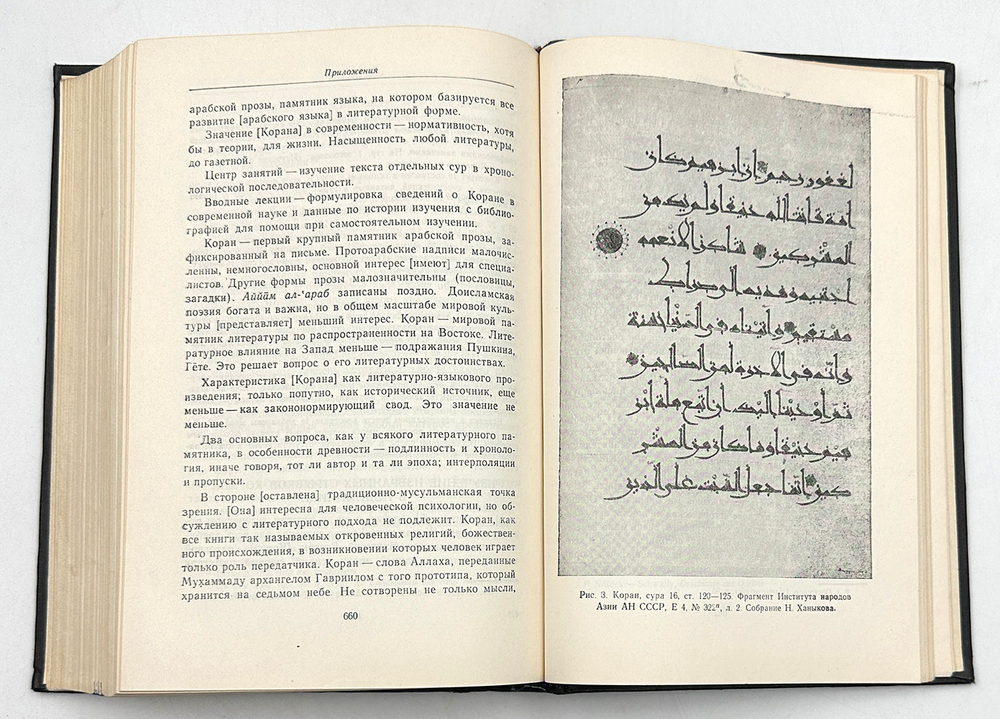 Приложения
арабской прозы, памятник языка, на котором базируется все
развитие [арабского языка] в литературной форме.
Значение [Корана] в современности — нормативность, хотя
бы в теории, для жизни. Насыщенность любой литературы,
до газетной.
Центр занятий — изучение текста отдельных сур в хроно-
логической последовательности.
Вводные лекции — формулировка сведений о Коране в
современной науке и данные по истории изучения с библио-
графией для помощи при самостоятельном изучении.
Коран — первый крупный памятник арабской прозы, за-
фиксированный на письме. Протоарабские надписи малочис-
ленны, немногословны, основной интерес [имеют] для специа-
листов. Другие формы прозы малозначительны (пословицы,
загадки). Аййāм ал-‘араб записаны поздно. Доисламская
поэзия богата и важна, но в общем масштабе мировой куль-
туры [представляет] меньший интерес. Коран — мировой па-
мятник литературы по распространенности на Востоке. Лите-
ратурное влияние на Запад меньше — подражания Пушкина,
Гёте. Это решает вопрос о его литературных достоинствах.
Характеристика [Корана] как литературно-языкового про-
изведения; только попутно, как исторический источник, еще
меньше — как законономирующий свод. Это значение не
меньше.
Два основных вопроса, как у всякого литературного па-
мятника, в особенности древности — подлинность и хроноло-
гия, иначе говоря, тот ли автор и та ли эпоха; интерполяции
и пропуски.
В стороне [оставлена] традиционно-мусульманская точка
зрения. [Она] интересна для человеческой психологии, но об-
суждению с литературного подхода не подлежит. Коран, как
все книги так называемых откровенных религий, божествен-
ного происхождения, в возникновении которых человек играет
только роль передатчика. Коран — слова Аллаха, переданные
Мухаммаду архангелом Гавриилом с того прототипа, который
хранится на седьмом небе. Не сотворены не только мысли,
660
لغفور رحيم ان ابرهيم كان
امة قانتا لله حنيفا ولم يك من
المشركين شاكرا لانعمه
اجتبيه وهديه الى صراط
مستقيم واتيناه في الدنيا حسنة
وانه في الاخرة لمن الصالحين
ثم اوحينا اليك ان اتبع ملة ابر
هيم حنيفا وما كان من المشر
كين انما جعل السبت على الذين
Рис. 3. Коран, сура 16, ст. 120—125. Фрагмент Института народов
Азии АН СССР, Е 4, № 322ª, л. 2. Собрание Н. Ханыкова.